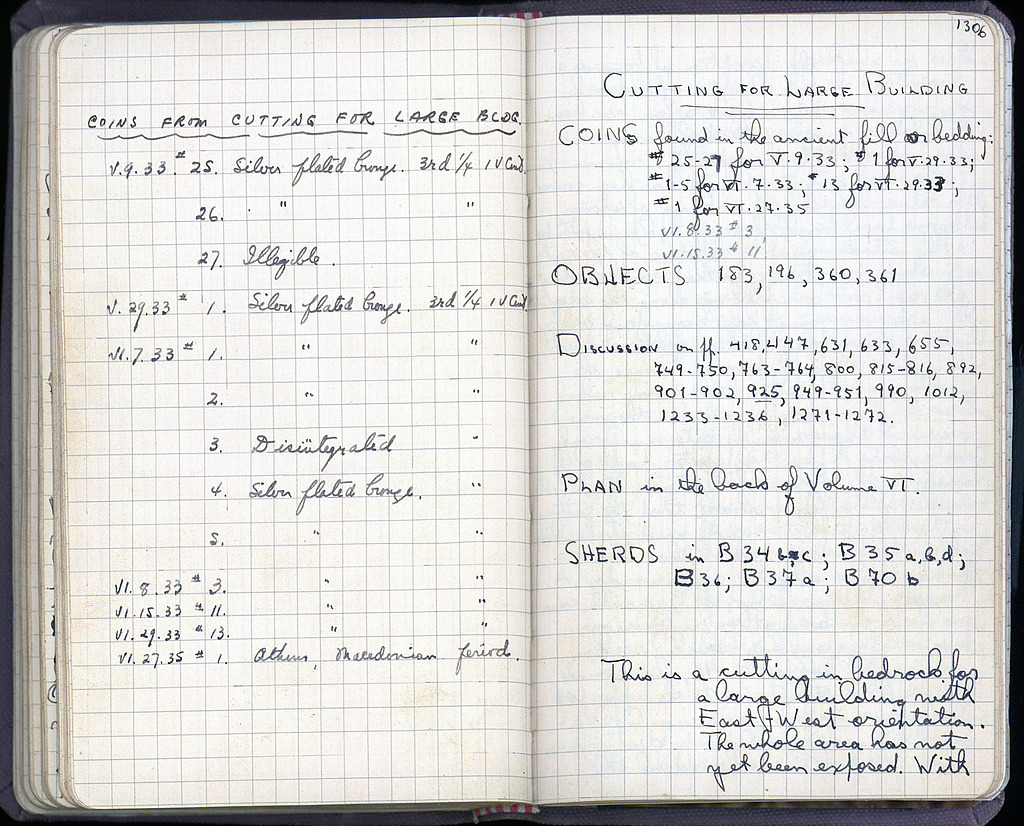 COINS FROM CUTTING FOR LARGE BLDG.
V.9.33 # 25. Silver plated bronze. 3rd 1/4 IV Cent.
26. " "
27. Illegible.
V.29.33 # 1. Silver plated bronze. 3rd 1/4 IV Cent.
VI.7.33 # 1. " "
2. " "
3. Disintegrated "
4. Silver plated bronze. "
5. " "
VI.8.33 # 3. " "
VI.15.33 # 11. " "
VI.29.33 # 13. " "
VI.27.35 # 1. Athens, Macedonian period.
1306
CUTTING FOR LARGE BUILDING
COINS found in the ancient fill or bedding:
# 25-27 for V.9.33; # 1 for V.29.33;
# 1-5 for VI.7.33; # 13 for VI.29.33;
# 1 for VI.27.35
VI.8.33 # 3,
VI.15.33 # 11
OBJECTS 183, 196, 360, 361
DISCUSSION on pp. 418, 447, 631, 633, 655,
749-750, 763-764, 800, 815-816, 892,
901-902, 925, 949-951, 990, 1012,
1233-1236, 1271-1272.
PLAN in the back of Volume VI.
SHERDS in B 34 b, c; B 35 a, b, d;
B 36; B 37 a; B 70 b
This is a cutting in bedrock for
a large building with
East-West orientation.
The whole area has not
yet been exposed. With